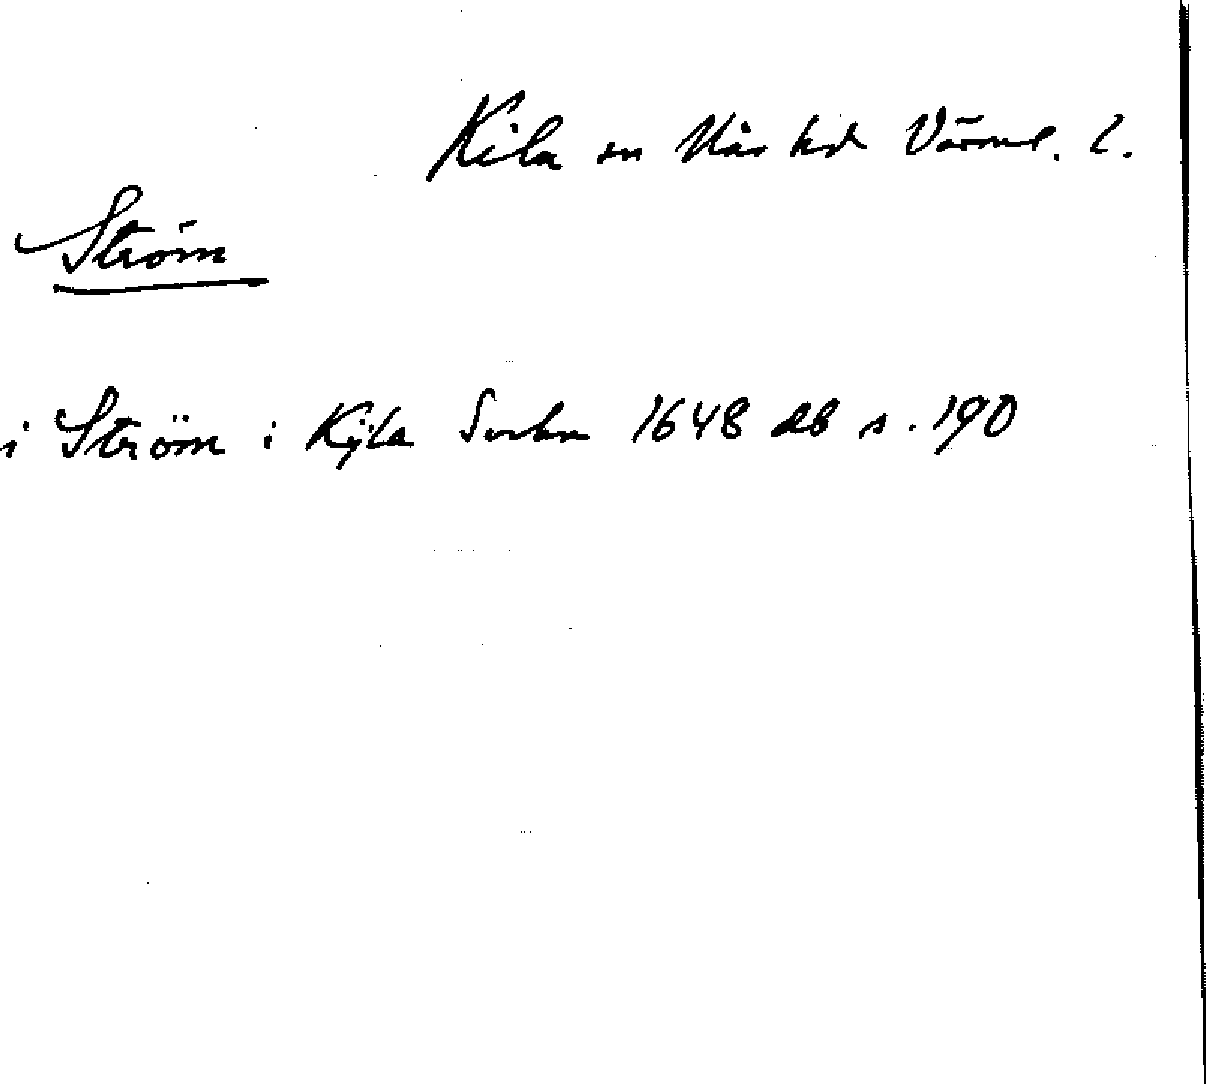 Kila sn Näs hd Värml. l.
Ström
i Ström i Kÿla Sochn 1648 db s. 190